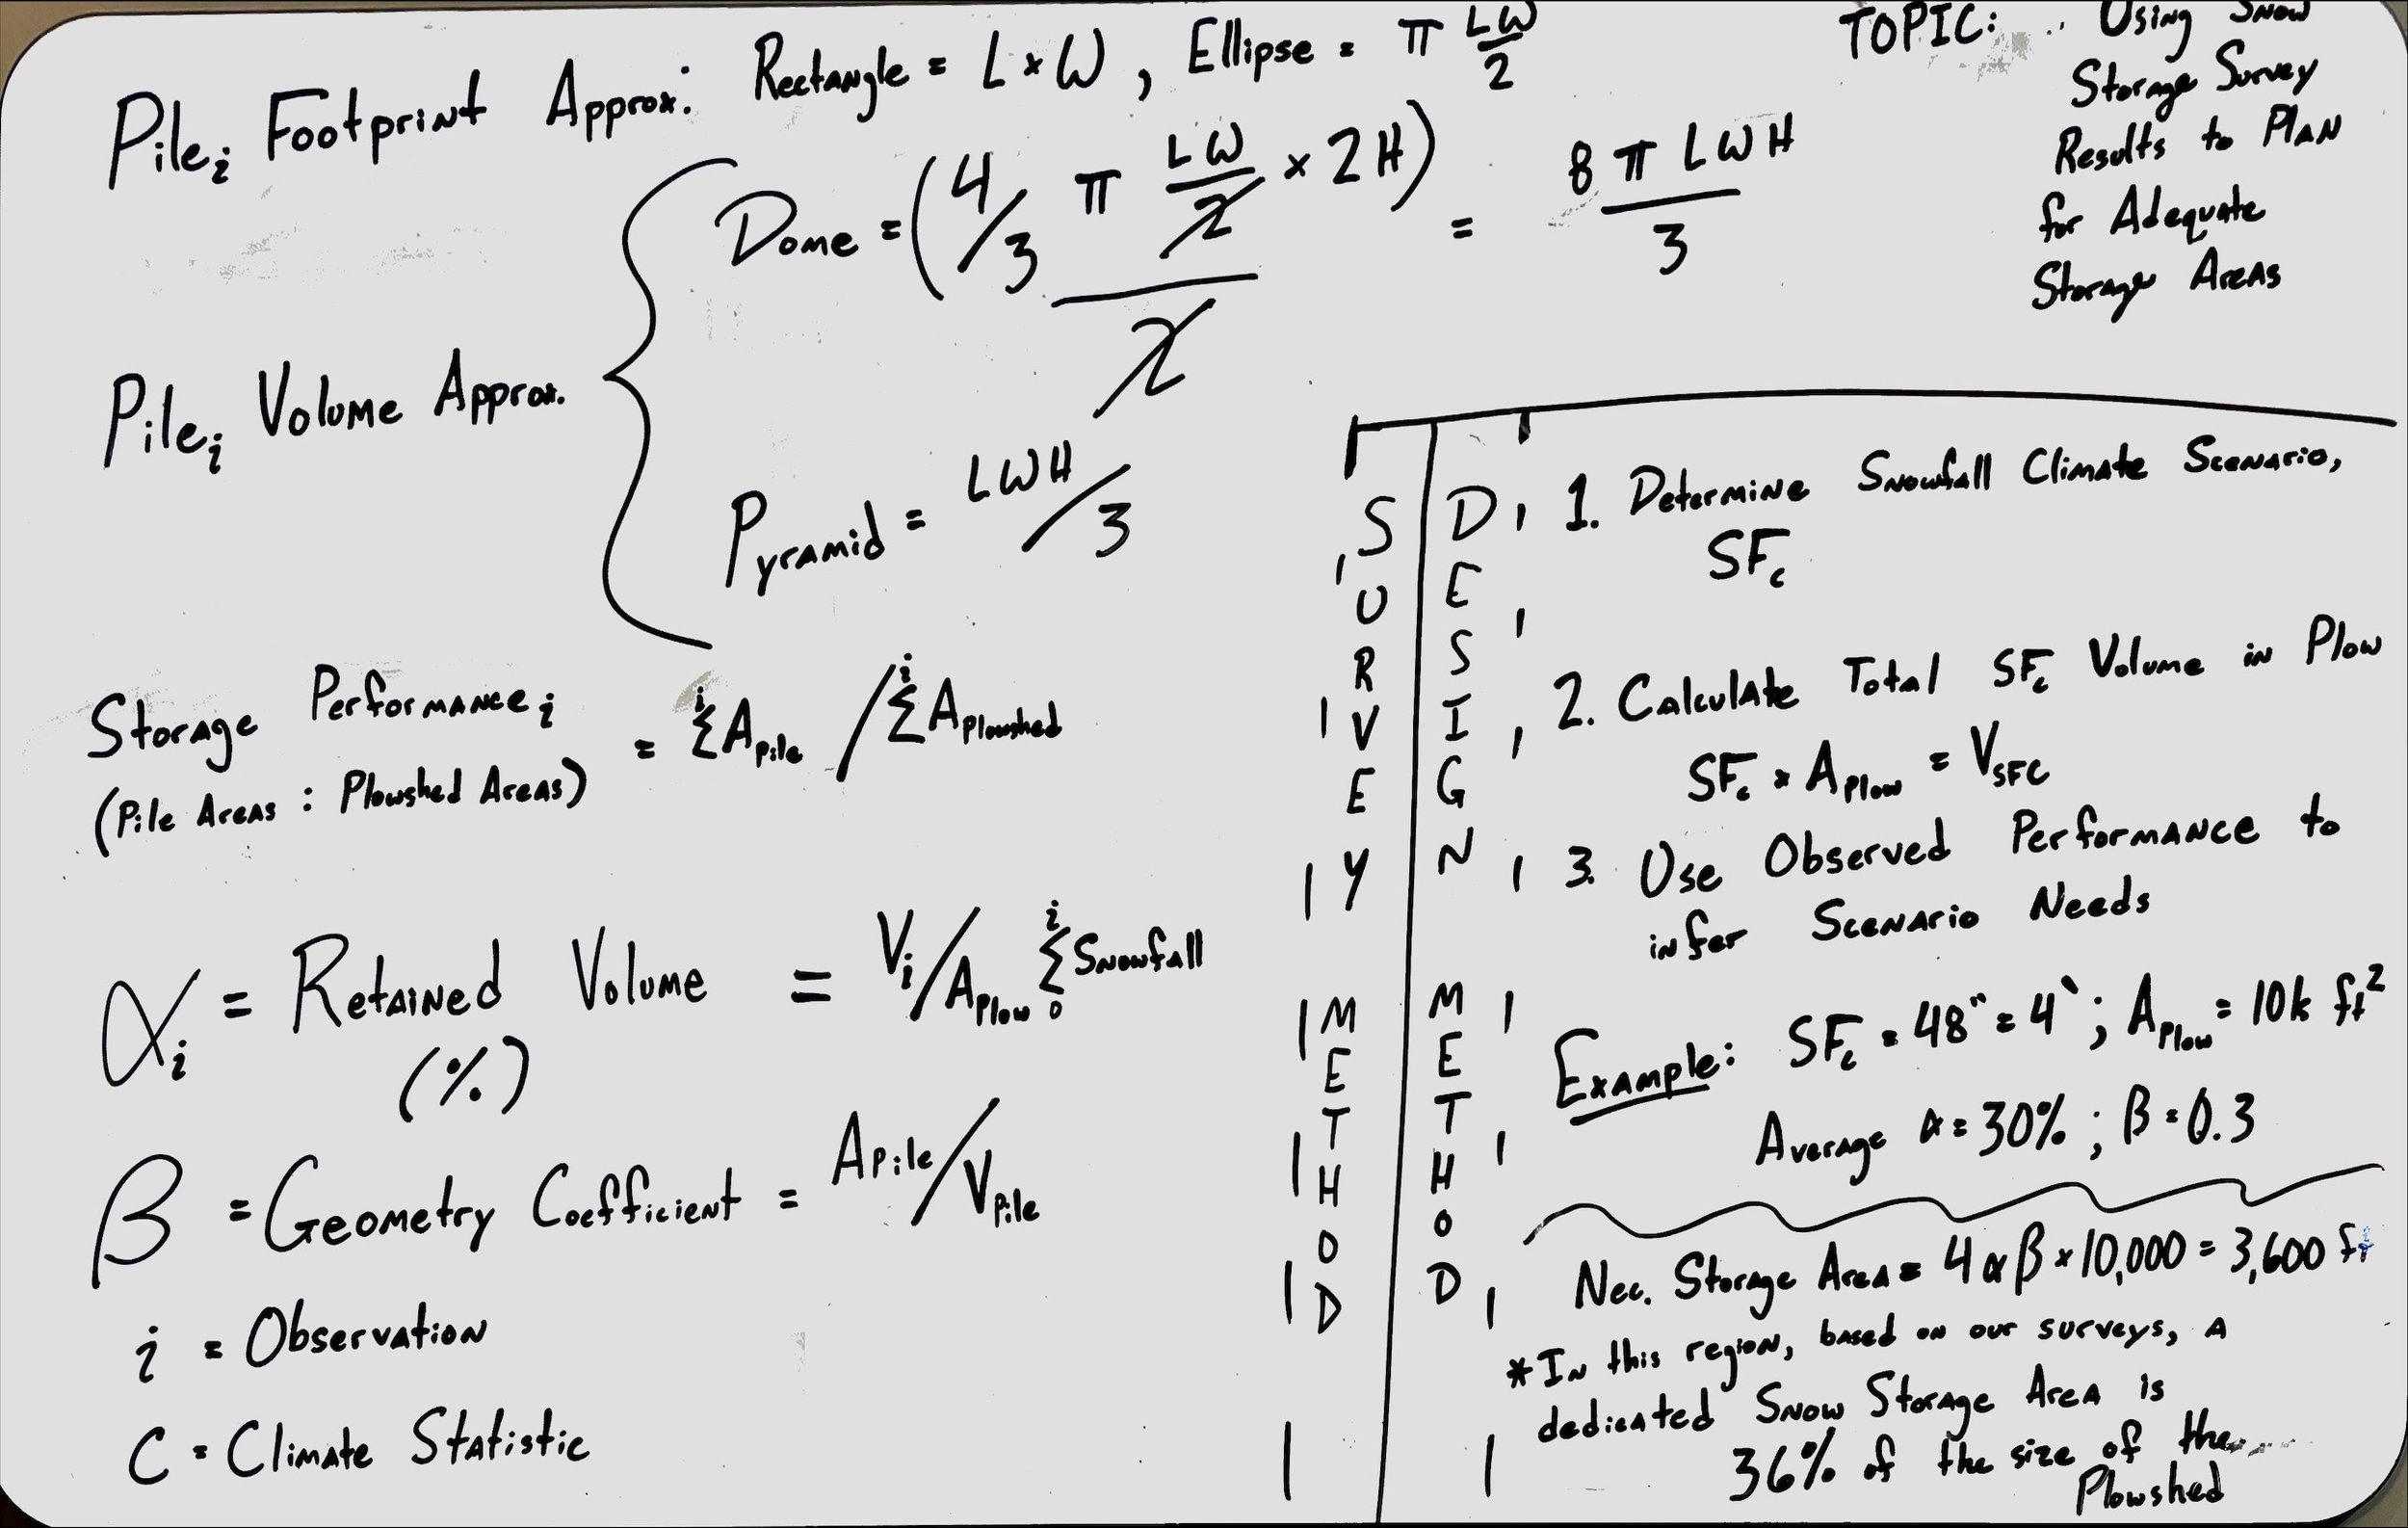 TOPIC: Using Snow
Storage Survey
Results to Plan
for Adequate
Storage Areas
Pile_i Footprint Approx: Rectangle = L × W, Ellipse = π LW/2
Pile_i Volume Approx.
Dome = (4/3 π LW/2 × 2H)/2 = 8πLWH/3
Pyramid = LWH/3
Storage Performance_i = Σ^i A_Pile / Σ^i A_Plowshed
(Pile Areas : Plowshed Areas)
α_i = Retained Volume = V_i/A_Plow Σ_0^i Snowfall
(%)
β = Geometry Coefficient = A_Pile/V_Pile
i = Observation
C = Climate Statistic
SURVEY METHOD
DESIGN METHOD
1. Determine Snowfall Climate Scenario,
SF_c
2. Calculate Total SF_c Volume in Plow
SF_c × A_Plow = V_SFC
3. Use Observed Performance to
infer Scenario Needs
Example: SF_c = 48" = 4`; A_Plow = 10k ft²
Average α = 30%; β = 0.3
Nec. Storage Area = 4αβ × 10,000 = 3,600 ft
*In this region, based on our surveys, a
dedicated Snow Storage Area is
36% of the size of the
Plowshed